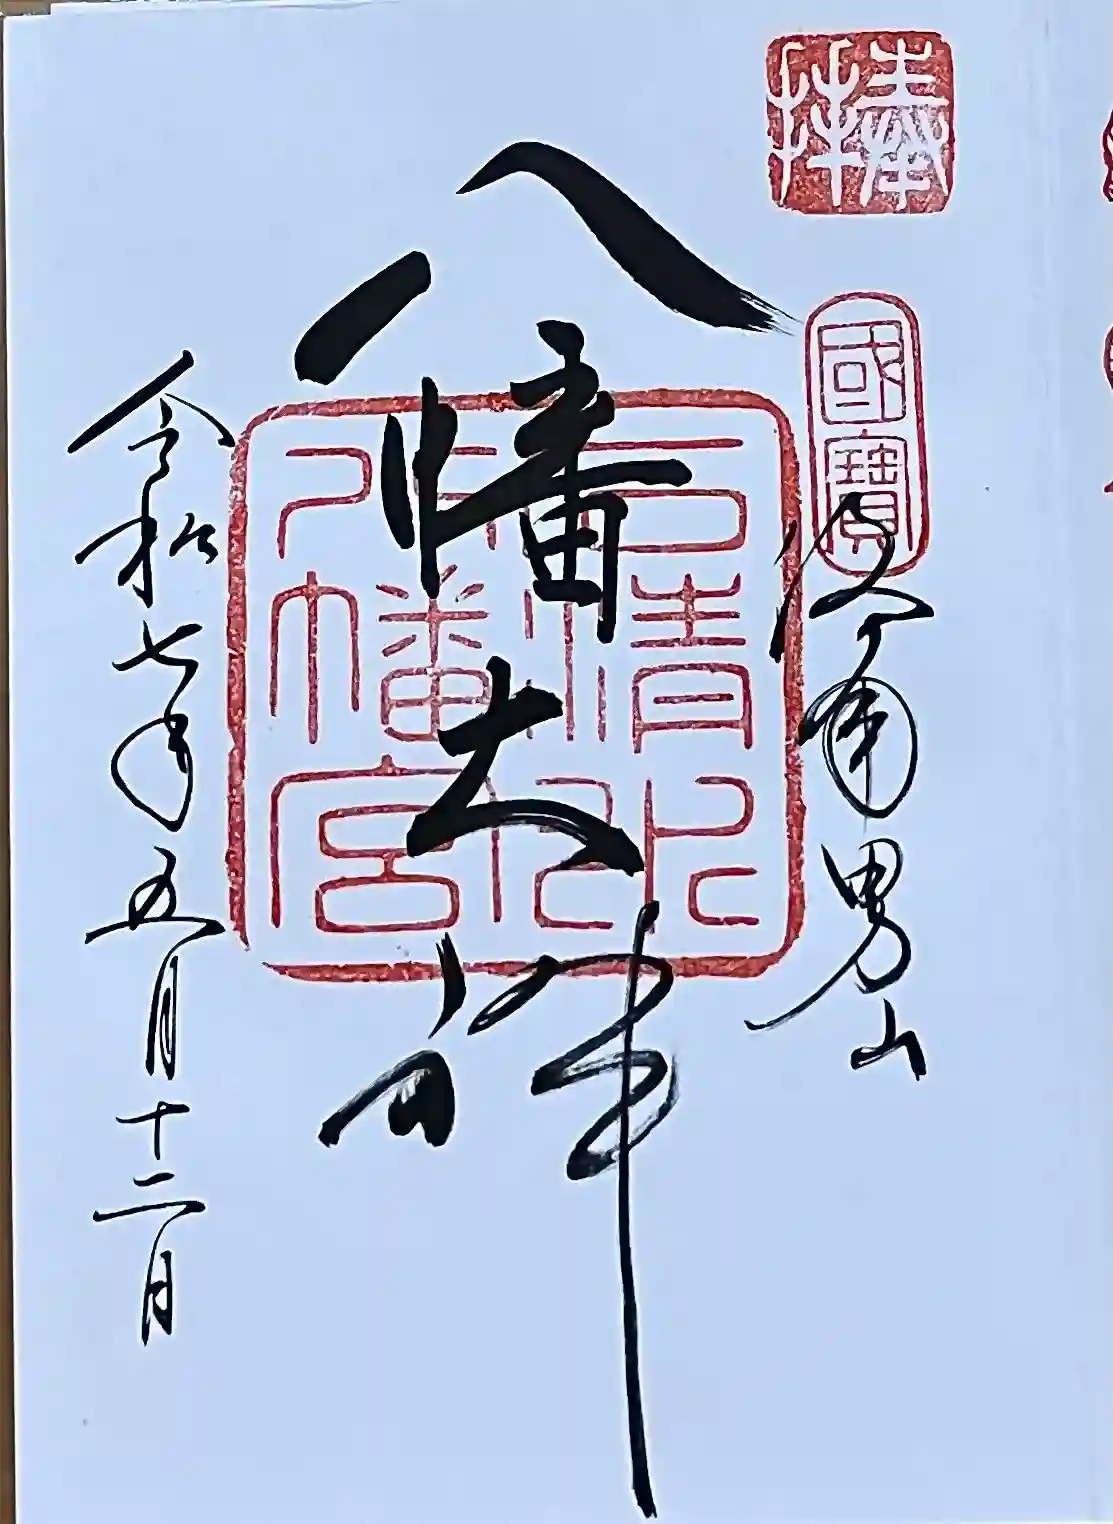 奉拝
國寶
男山
八幡大神
石清水
八幡宮
令和七年五月十二日